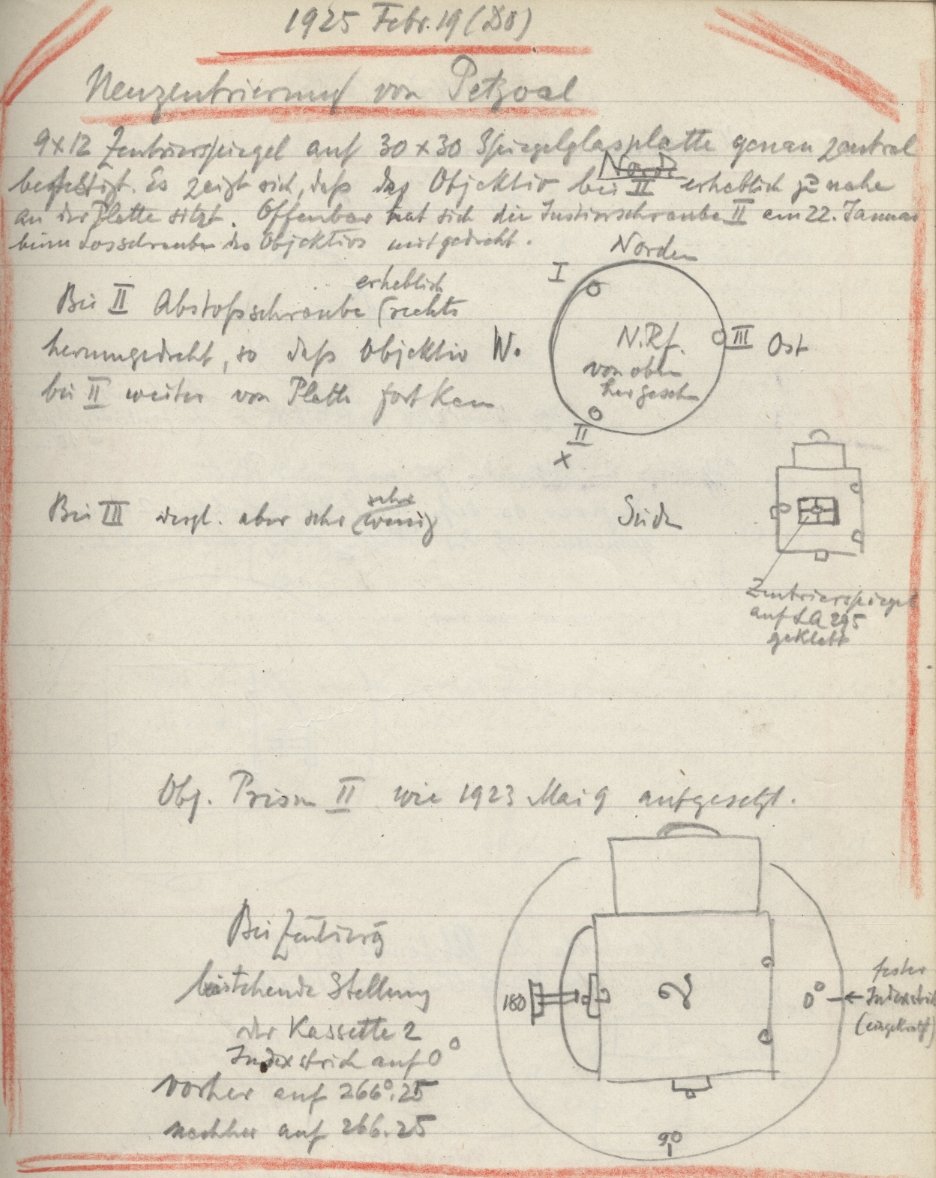 1925 Febr. 19 (Do)
Neuzentrierung von Petzval
9x12 Zentrierspiegel auf 30x30 Spiegelglasplatte genau zentral
befestigt. Es zeigt sich, daß das Objektiv bei II erheblich zu nahe
an der Platte sitzt. Offenbar hat sich die Justierschraube II am 22. Januar
beim Losschrauben des Objektivs mitgedreht.
Bei II Abstoßschraube erheblich rechts
herumgedreht, so daß Objektiv
bei II weiter von Platte fort kam
Norden
I
W.
N.Rf.
von oben
her gesehen
III Ost
II
x
Bei III desgl. aber sehr sehr wenig
Süden
Zentrierspiegel
auf LA 295
geklebt
Obj. Prism II wie 1923 Mai 9 aufgesetzt.
Bei
beistehende Stellung
der Kassette 2
Indexstrich auf 0°
vorher auf 266°.25
nachher auf 266.25
180
2
0° ← fester
Indexstrich
90